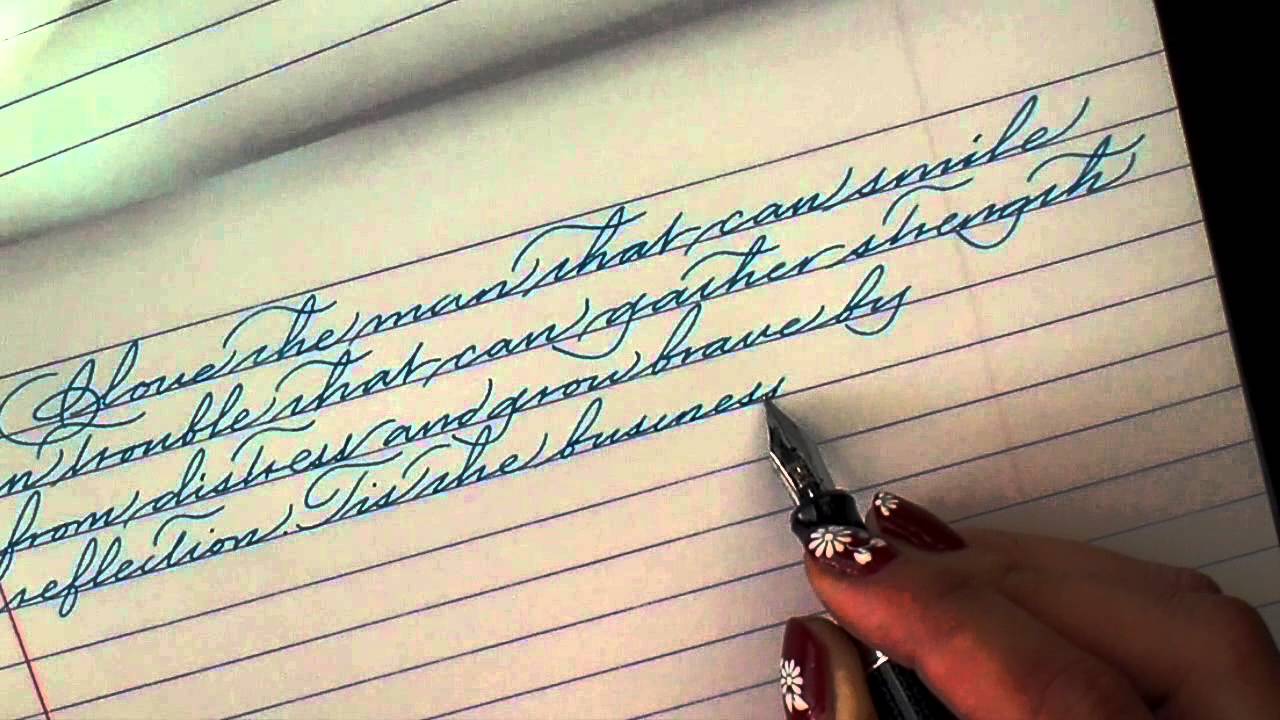 I love the man that can smile
n trouble that can gather strength
from distress and grow brave by
reflection. Tis the business